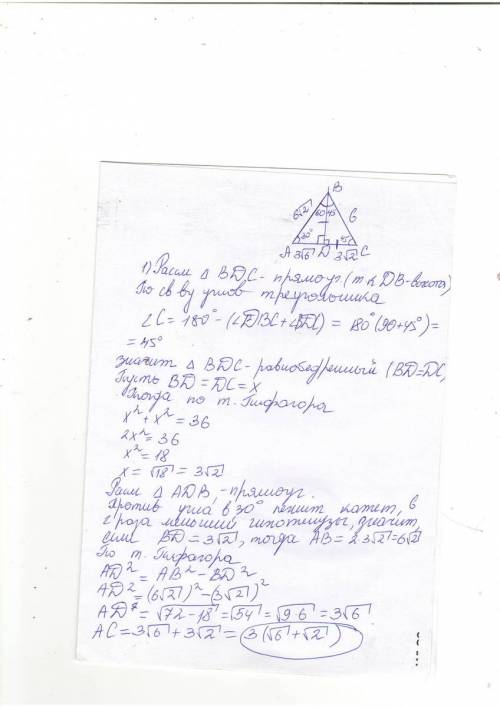 B
6√2
60 45
6
30°
45
A 3√6 D 3√2 C
1) Рассм △ BDC - прямоуг. (т к DB - высота)
По св ву углов треугольника
∠C = 180° - (∠DBC + ∠BDC) = 180° (90 + 45°) =
= 45°
значит △ BDC - равнобедренный (BD = DC,
Пусть BD = DC = x
Тогда по т. Пифагора
x² + x² = 36
2x² = 36
x² = 18
x = √18 = 3√2
Рассм △ ADB, - прямоуг.
Против угла в 30° лежит катет, в
2 раза меньший гипотенузы, значит,
если BD = 3√2, тогда AB = 2 3√2 = 6√2
По т. Пифагора
AD² = AB² - BD²
AD² = (6√2)² - (3√2)²
AD = √72 - 18 = √54 = √9·6 = 3√6
AC = 3√6 + 3√2 = 3(√6 + √2)